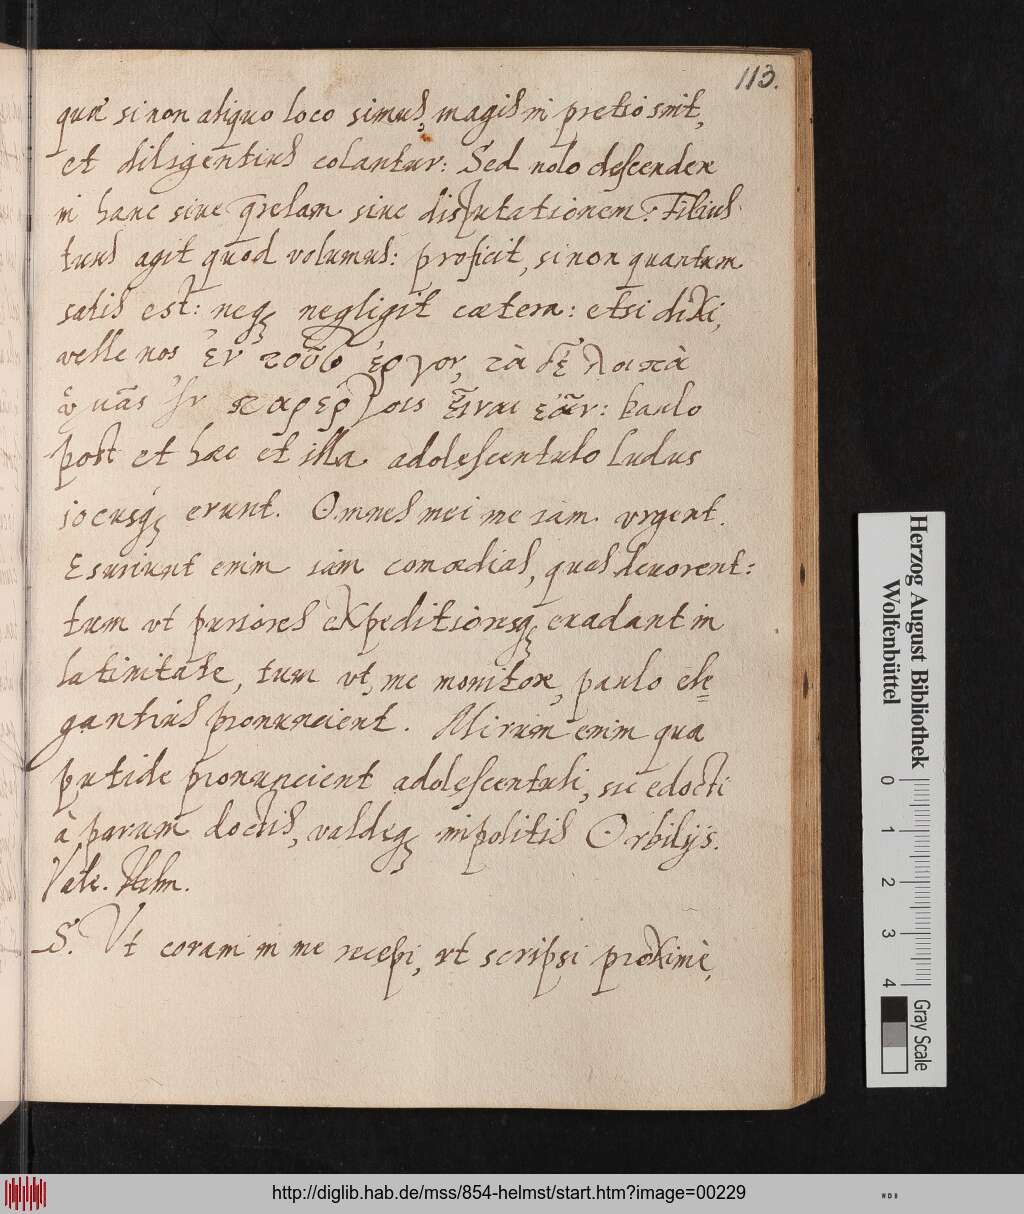 113.
quā si non aliquo loco simus, magis in pretio sint,
et diligentius colantur: Sed nolo descendere
in hanc siue querelam siue disputationem: Filius
tuus agit quod volumus: proficit, si non quantum
satis est: neq3 negligit cætera: etsi dixi,
velle nos ἓν τοῦδ ἔργον, τὰ δὲ λοιπὰ
ἡμᾶς ἐν παρέργοις εἶναι ἐᾶν: Paulo
post et hæc et illa adolescentulo ludus
iocusq3 erunt. Omnes mei me iam vrgent.
Esuriunt enim iam comœdias, quas deuorent:
tum vt puriores expeditioresq3 euadant in
latinitate, tum vt, me monitore, paulo ele=
gantius pronuncient. Mirum enim qua
putide pronuncient adolescentuli, sic edocti
à parum doctis, valdeq3 impolitis Orbilijs.
Vale. Helm.
S. Vt coram in me recepi, vt scripsi proximè,
Herzog August Bibliothek
Wolfenbüttel
0 1 2 3 4
Gray Scale
http://diglib.hab.de/mss/854-helmst/start.htm?image=00229